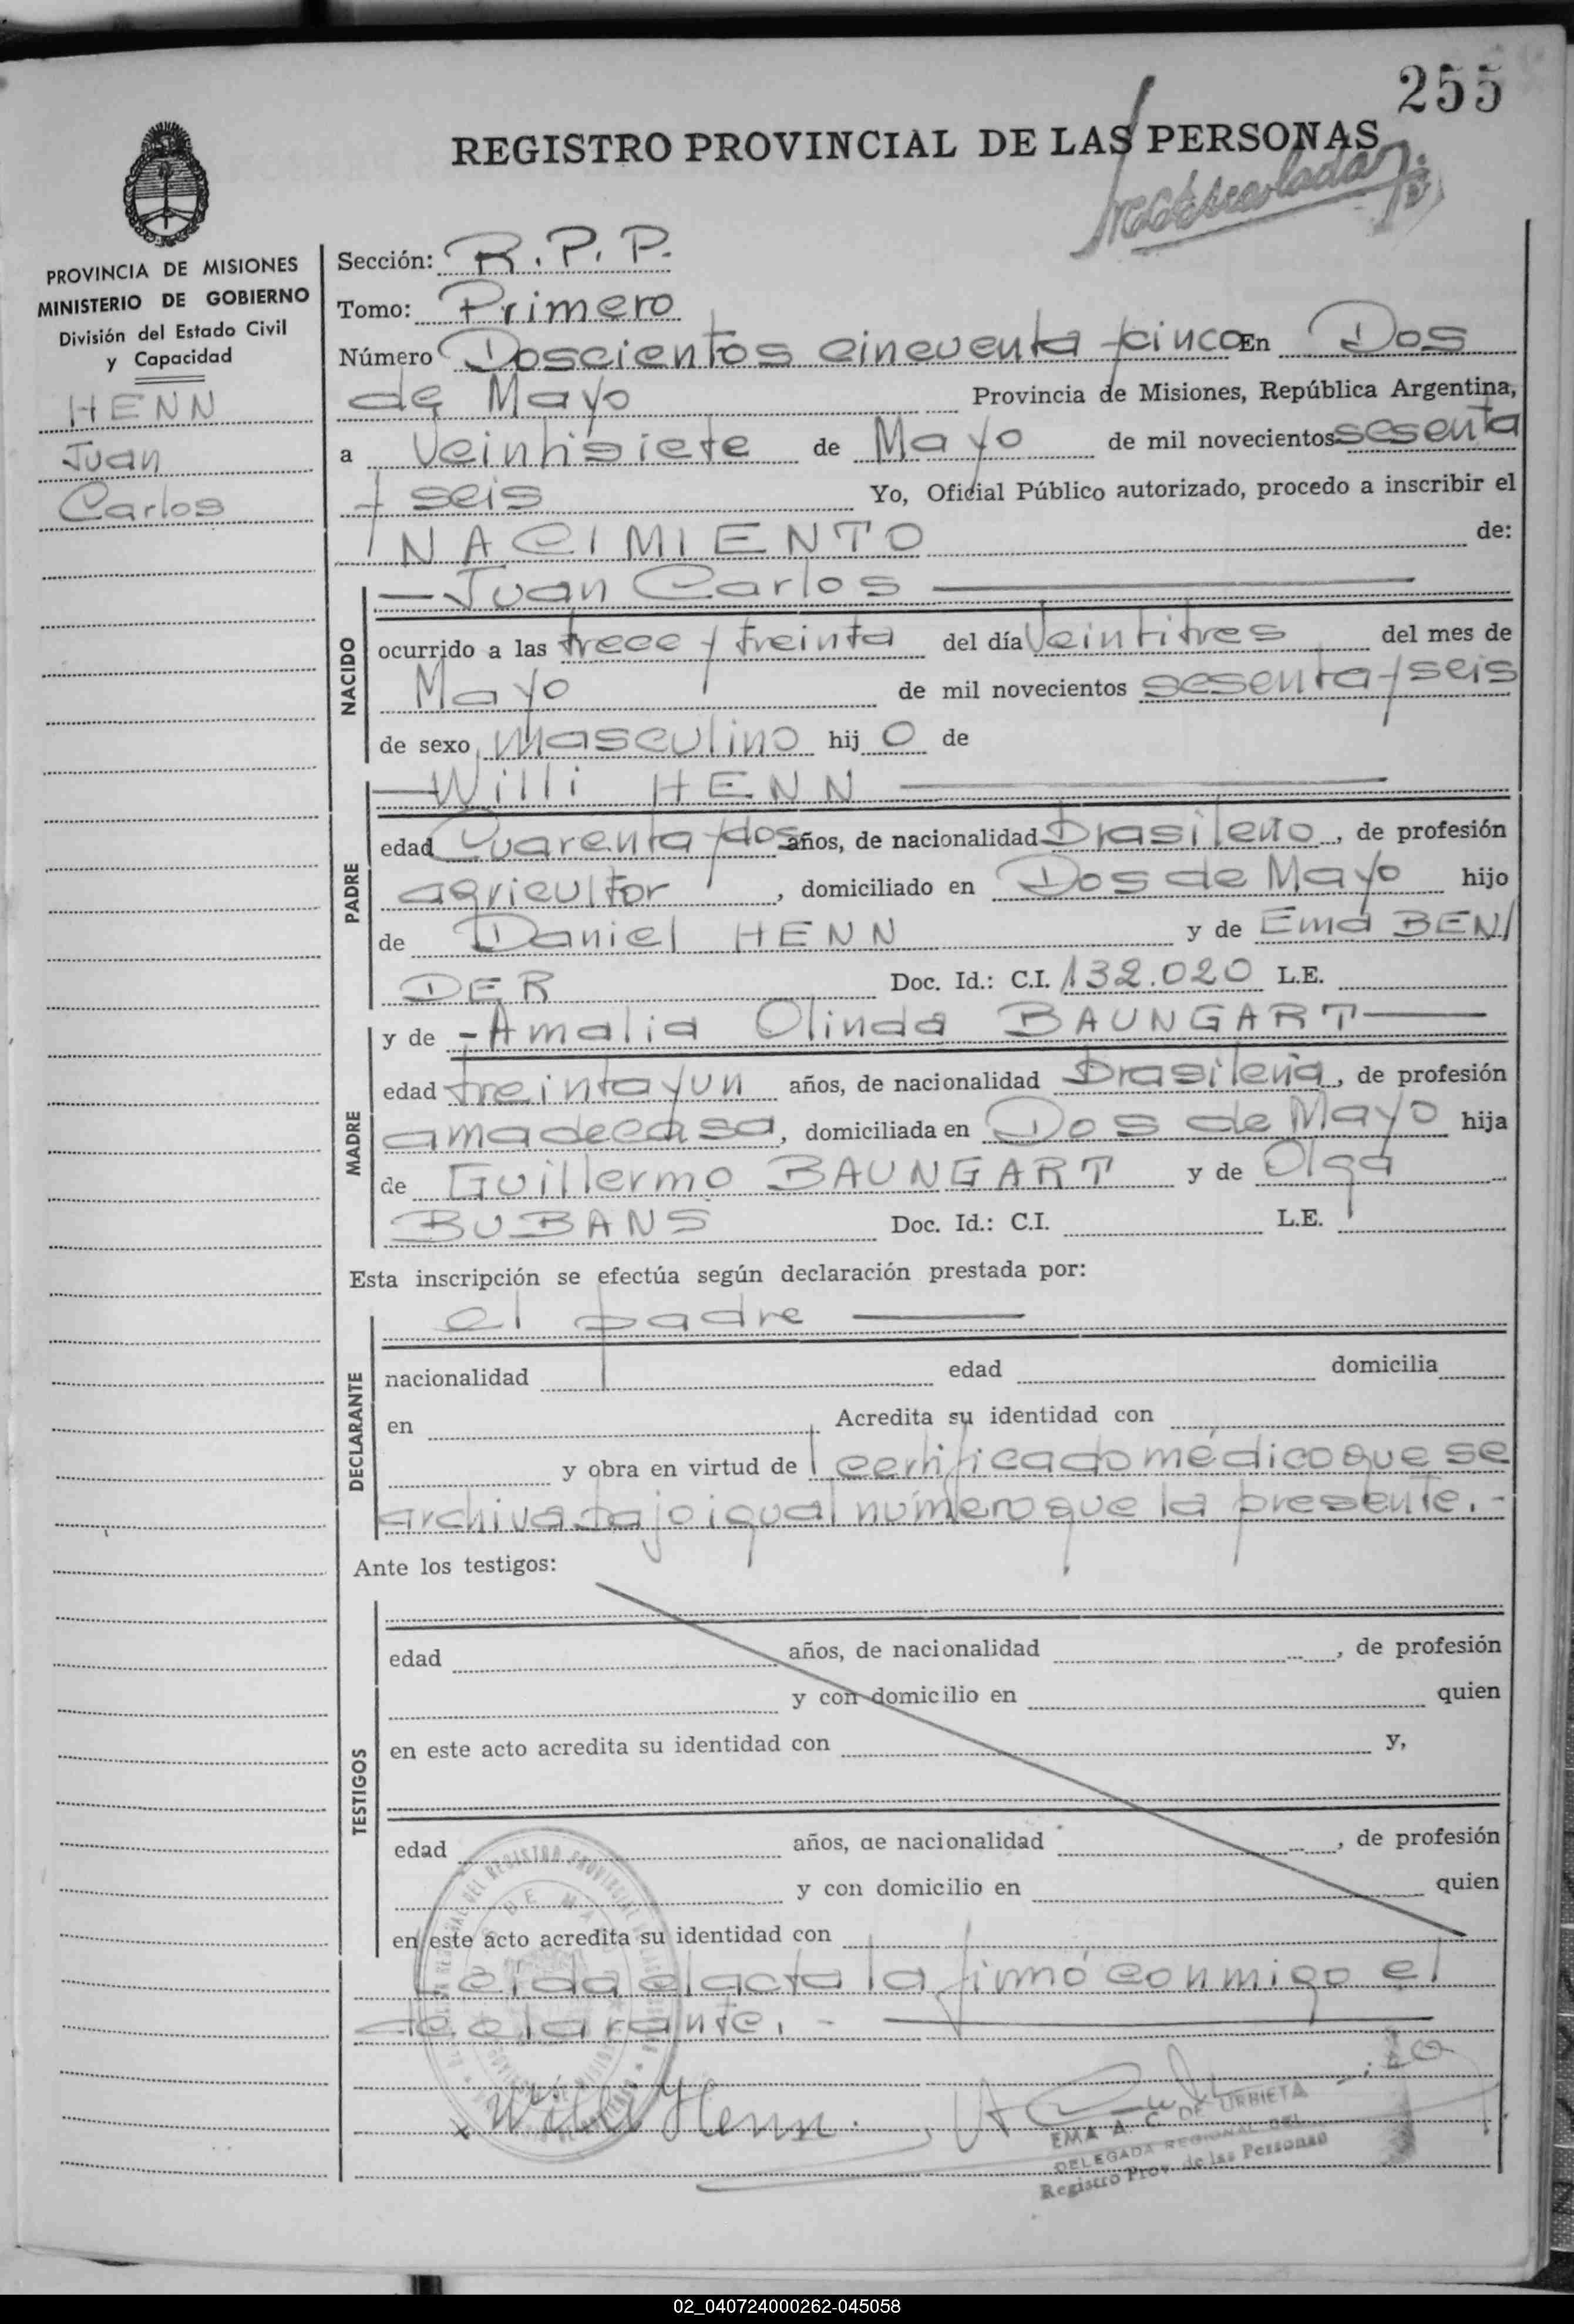 255
REGISTRO PROVINCIAL DE LAS PERSONAS
PROVINCIA DE MISIONES
MINISTERIO DE GOBIERNO
División del Estado Civil
y Capacidad
HENN
Juan
Carlos
Sección: R. P. P.
Tomo: Primero
Número Doscientos cincuenta y cinco En Dos
de Mayo Provincia de Misiones, República Argentina,
a Veintisiete de Mayo de mil novecientos sesenta
y seis Yo, Oficial Público autorizado, procedo a inscribir el
NACIMIENTO de:
NACIDO
— Juan Carlos —
ocurrido a las trece y treinta del día Veintitres del mes de
Mayo de mil novecientos sesenta y seis
de sexo masculino hij o de
PADRE
— Willi HENN —
edad Cuarenta y dos años, de nacionalidad Brasileño, de profesión
agricultor, domiciliado en Dos de Mayo hijo
de Daniel HENN y de Ema BEN/
DER Doc. Id.: C.I. 132.020 L.E.
MADRE
y de - Amalia Olinda BAUNGART —
edad treinta y un años, de nacionalidad Brasileña, de profesión
ama de casa, domiciliada en Dos de Mayo hija
de Guillermo BAUNGART y de Olga
BUBANS Doc. Id.: C.I. L.E.
Esta inscripción se efectúa según declaración prestada por:
DECLARANTE
el padre —
nacionalidad edad domicilia
en Acredita su identidad con
y obra en virtud de certificado médico que se
archiva bajo igual número que la presente. -
Ante los testigos:
TESTIGOS
edad años, de nacionalidad , de profesión
y con domicilio en quien
en este acto acredita su identidad con y,
edad años, de nacionalidad , de profesión
y con domicilio en quien
en este acto acredita su identidad con
Leida el acta la firmó conmigo el
declarante. - —
x Willi Henn.
EMA A. C. DE URBIETA
DELEGADA REGIONAL DEL
Registro Prov. de las Personas
02_040724000262-045058